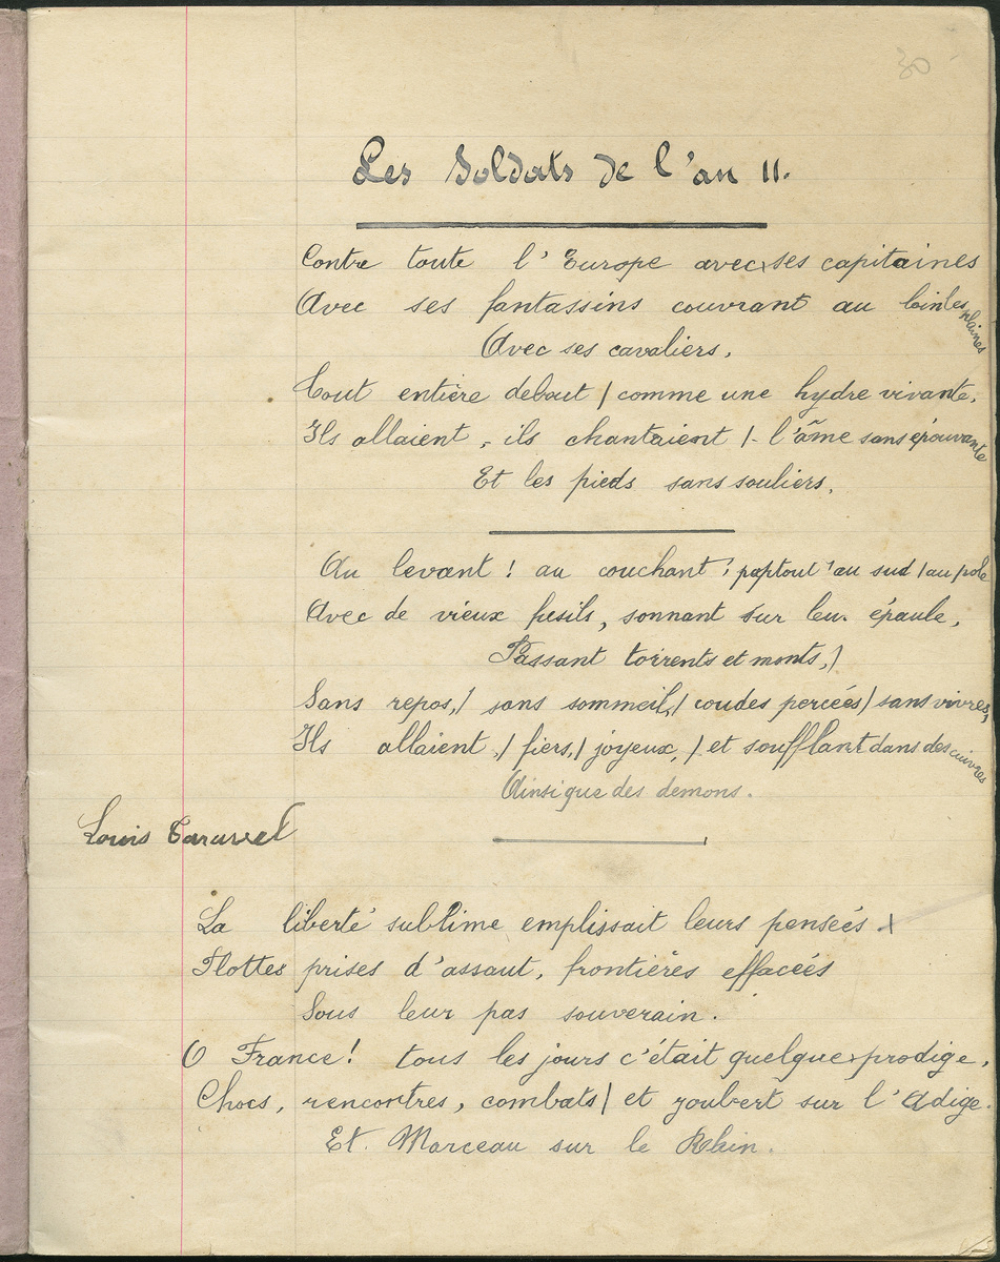 30
Les Soldats de l'an II.
Contre toute l'Europe avec ses capitaines
Avec ses fantassins couvrant au loin les plaines
Avec ses cavaliers.
Tout entière debout / comme une hydre vivante,
Ils allaient, ils chantaient /- l'âme sans épouvante
Et les pieds sans souliers.
Au levant ! au couchant ! partout ! au sud / au pole
Avec de vieux fusils, sonnant sur leur épaule,
Passant torrents et monts, /
Sans repos, / sans sommeil, / coudes percées / sans vivres,
Ils allaient, / fiers, / joyeux, / et soufflant dans des cuivres
Ainsi que des demons.
Louis
La liberté sublime emplissait leurs pensées. x
Flottes prises d'assaut, frontières effacées
Sous leur pas souverain.
O France ! tous les jours c'était quelque prodige,
Chocs, rencontres, combats / et Joubert sur l'Adige.
Et Marceau sur le Rhin.